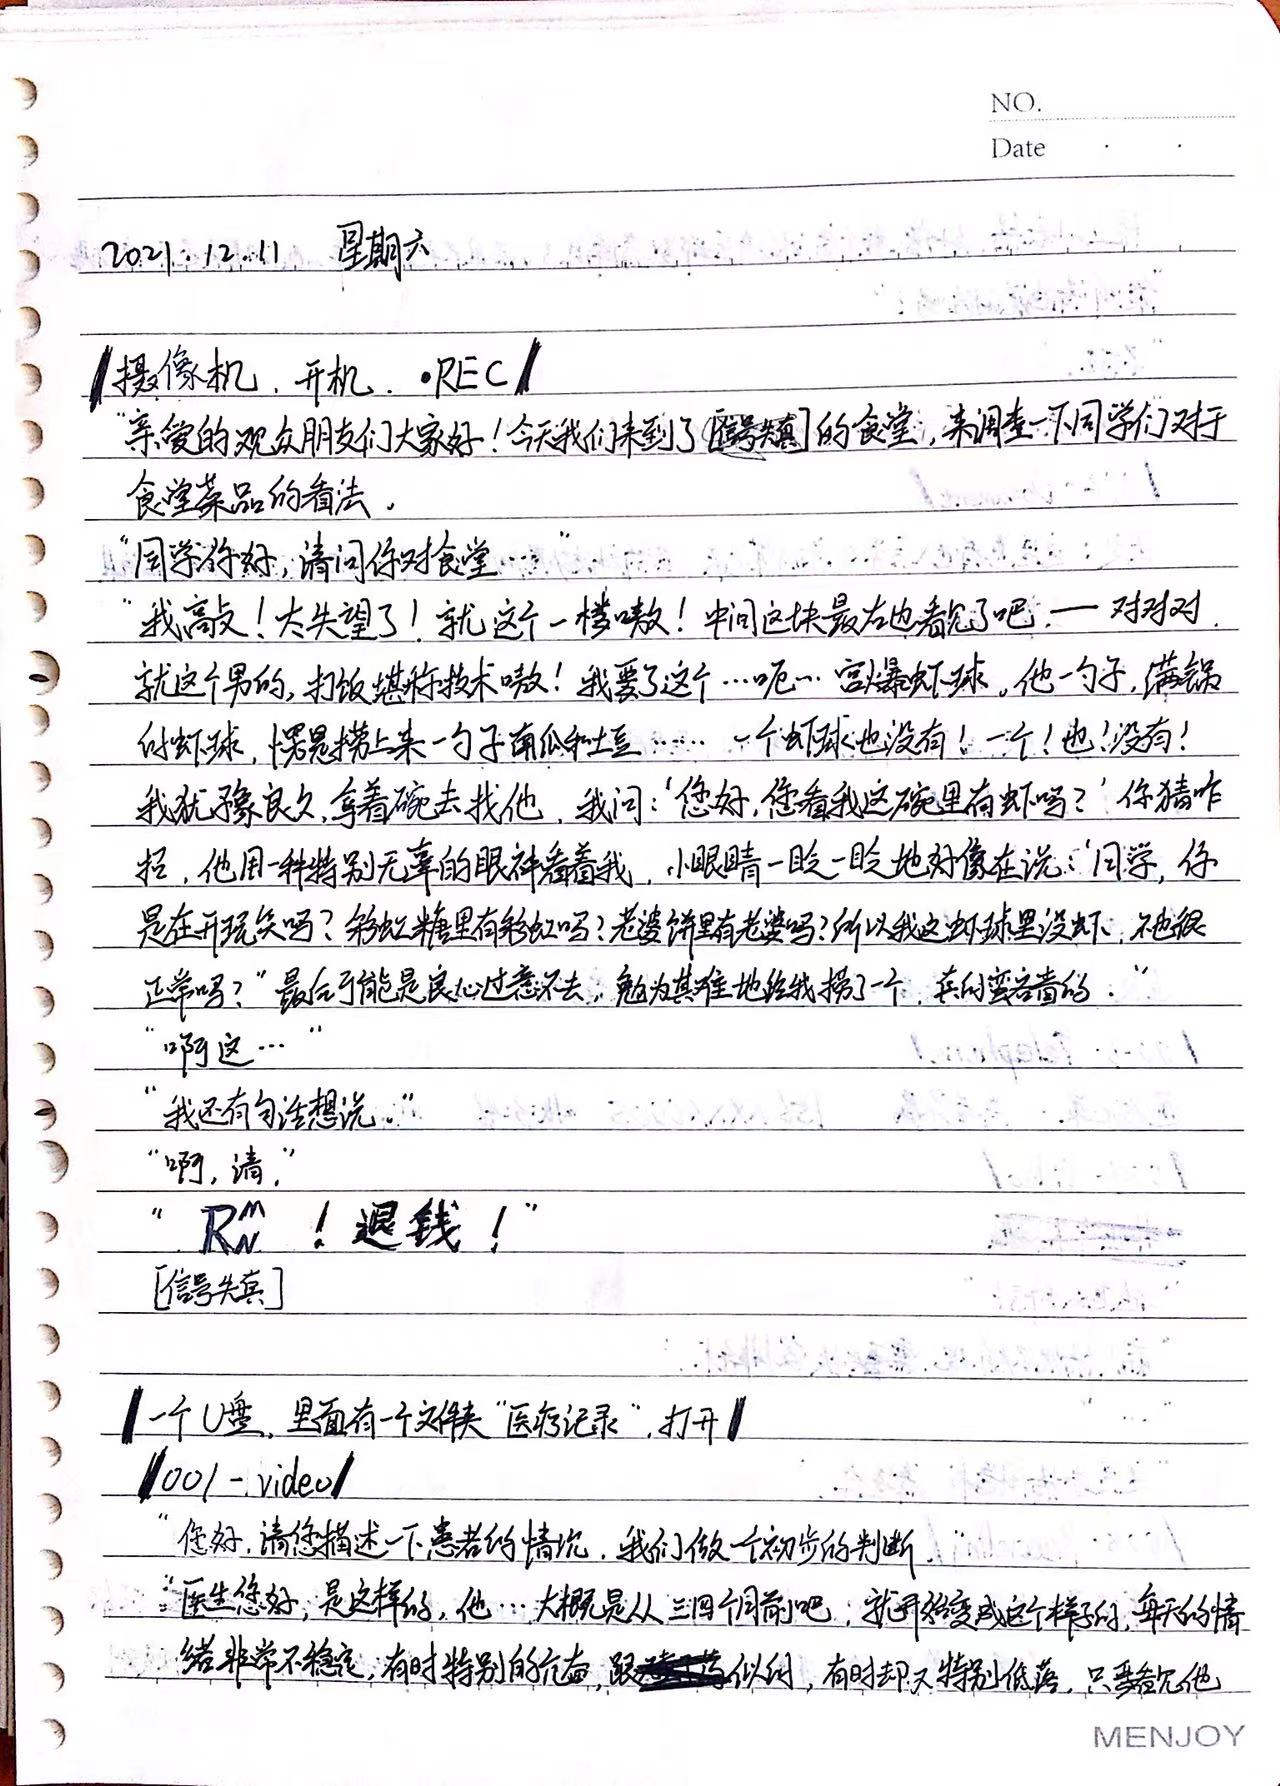 NO.
Date
2021.12.11 星期六
摄像机，开机．·REC
“亲爱的观众朋友们大家好！今天我们来到了[信号失真]的食堂，来调查一下同学们对于
食堂菜品的看法．
“同学你好，请问你对食堂……”
“我高攴！太失望了！就这个一楼嗷！中间这块最左边看见了吧．— 对对对．
就这个男的，打饭堪称技术嗷！我要了这个…呃…宫爆虾球．他一勺子，满锅
的虾球，愣是捞上来一勺子南瓜和土豆……一个虾球也没有！一个！也！没有！
我犹豫良久，拿着碗去找他．我问：‘您好，您看我这碗里有虾吗？’你猜咋
招，他用一种特别无辜的眼神看着我，小眼睛一眨一眨地好像在说：‘同学，你
是在开玩笑吗？彩虹糖里有彩虹吗？老婆饼里有老婆吗？所以我这虾球里没虾，不也很
正常吗？”最后可能是良心过意不去，勉为其难地给我捞了一个，真的蛮吝啬的．”
“啊这…”
“我还有句话想说．”
“啊，请．”
“RMN！退钱！”
[信号失真]
一个U盘，里面有一个文件夹“医疗记录”，打开
001-.video
“您好，请您描述一下患者的情况，我们做个初步的判断．”
“医生您好，是这样的，他…大概是从三四个月前吧，就开始变成这个样子的，每天的情
绪非常不稳定，有时特别的亢奋，跟似的，有时却又特别低落，只要看见他
MENJOY